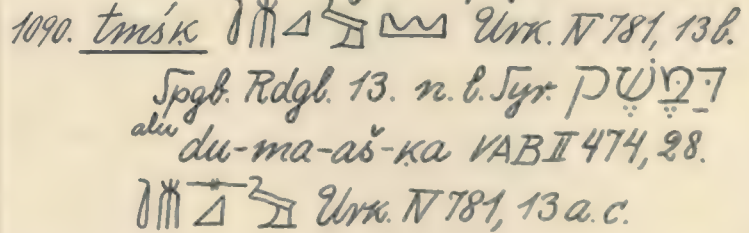 1090. tmśḳ Urk. IV 781, 13b.
Rdgl. 13. n. l. Syr. דַּמֶּשֶׁק
alu du-ma-aš-ḳa VAB II 474, 28.
Urk. IV 781, 13 a. c.